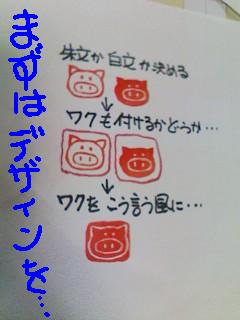 まずはデザインを…
朱文か白文か決める
ワクも付けるかどうか…
ワクをこう言う風に…